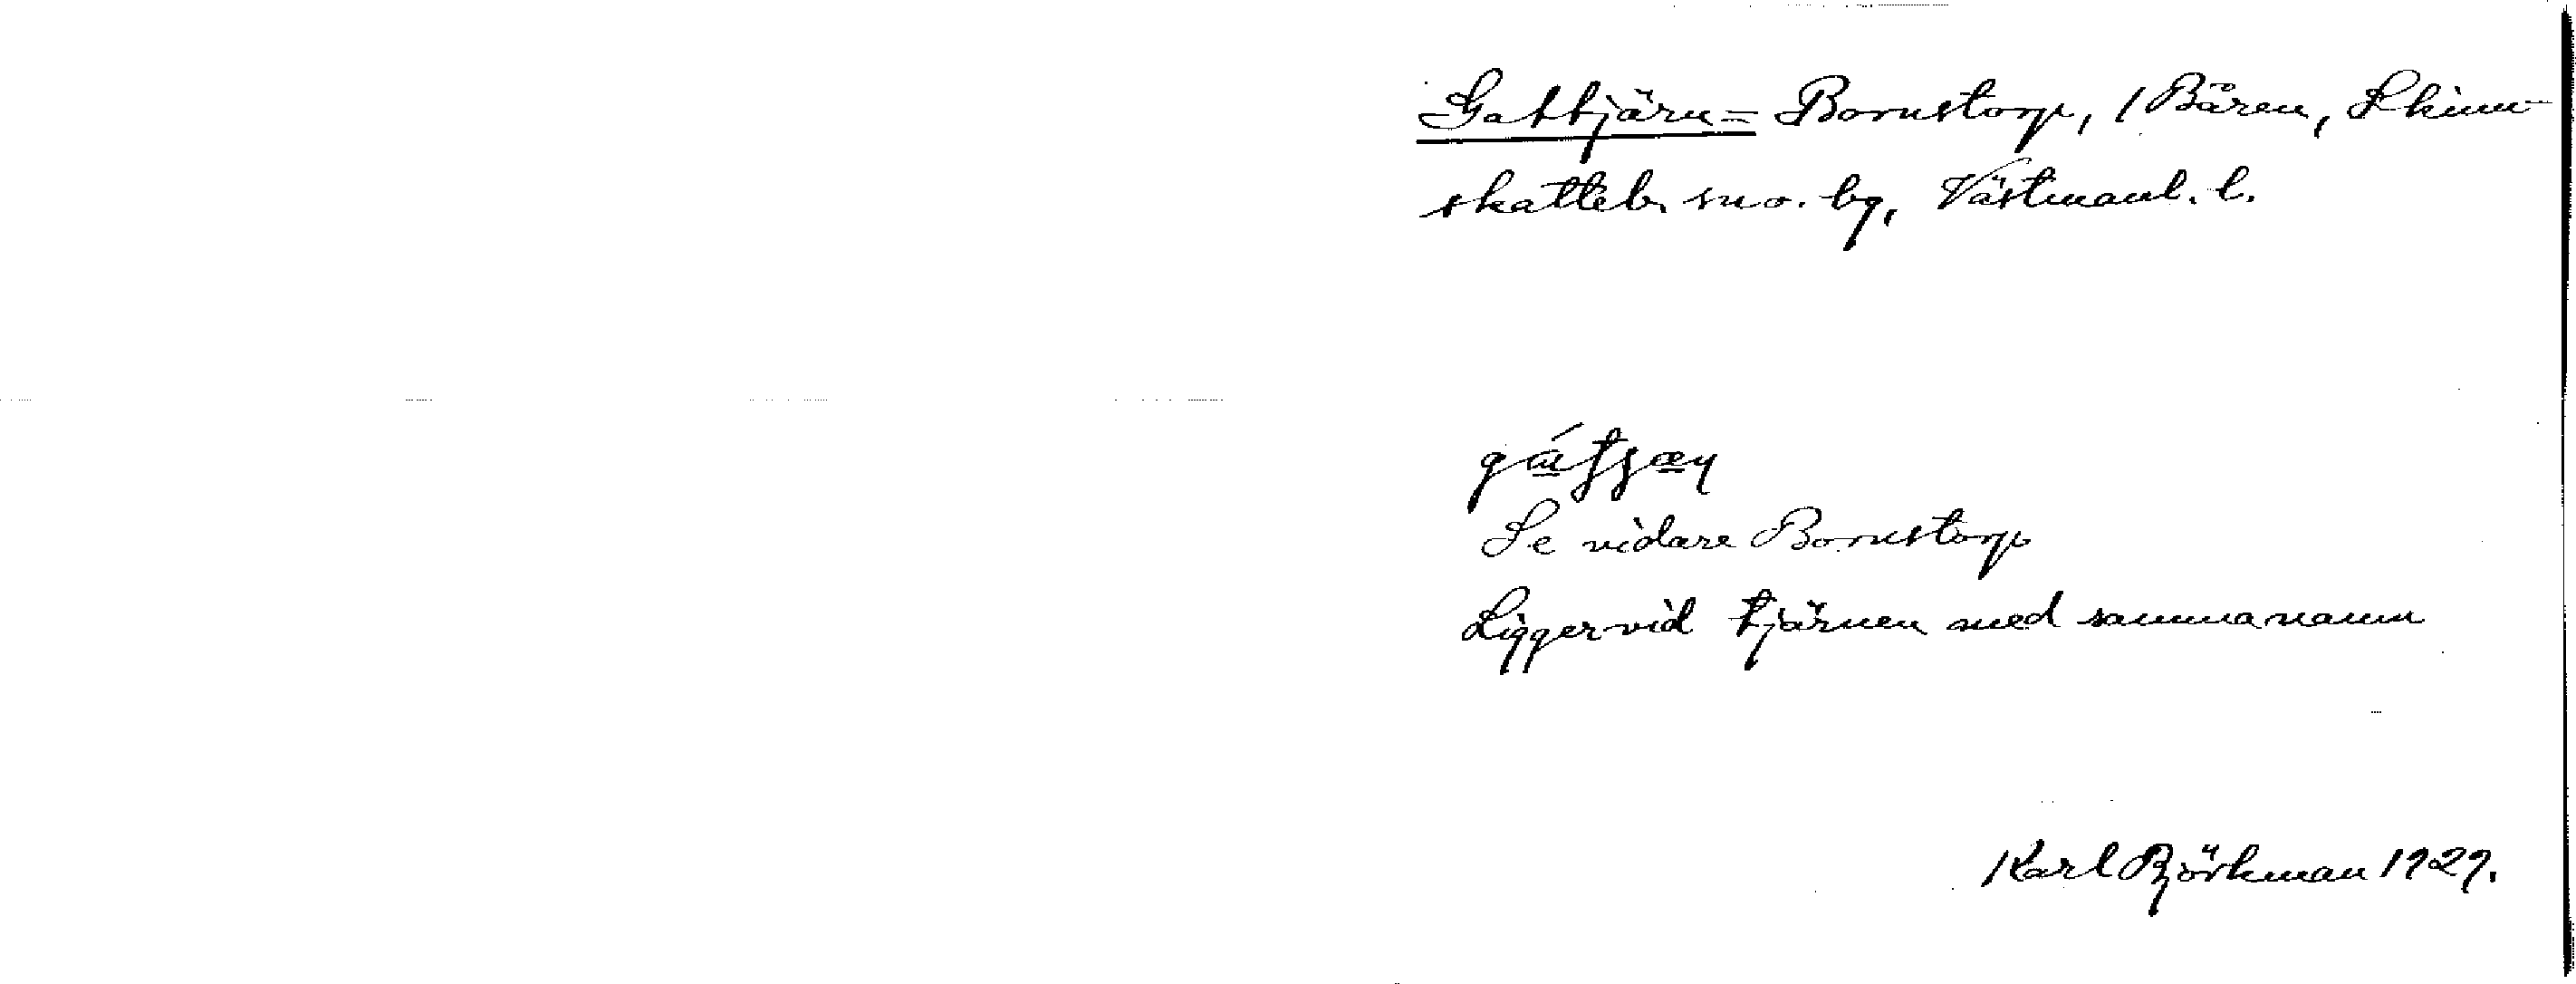 Gattjärn = Bornstorp, /Bären, Skinn-
skatteb. sn o. bg, Västmanl. l.
Se vidare Bornstorp
Ligger vid tjärnen med samma namn
Karl Björkman 1929.